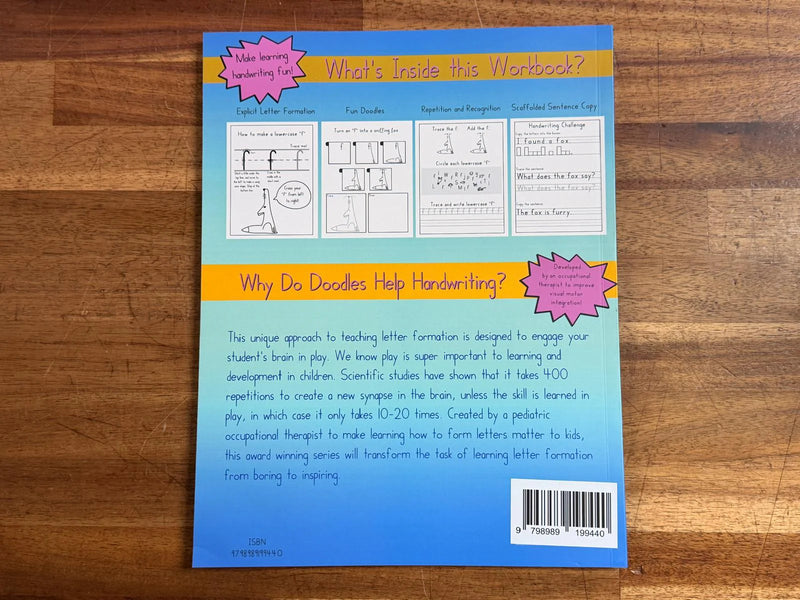 Make learning
handwriting fun!
What's Inside this Workbook?
Explicit Letter Formation
Fun Doodles
Repetition and Recognition
Scaffolded Sentence Copy
How to make a lowercase "f"
Trace me!
f f f
Draw your
"f" from left
to right!
Turn an "f" into a sniffing fox
Trace the f.
Add the f.
Circle each lowercase "f"
Trace and write lowercase "f"
Handwriting Challenge
Copy the letters into the boxes.
I found a fox.
Trace the sentence.
What does the fox say?
What does the fox say?
Copy the sentence.
The fox is furry.
Why Do Doodles Help Handwriting?
Developed
by an occupational
therapist to improve
visual motor
integration!
This unique approach to teaching letter formation is designed to engage your
student's brain in play. We know play is super important to learning and
development in children. Scientific studies have shown that it takes 400
repetitions to create a new synapse in the brain, unless the skill is learned in
play, in which case it only takes 10-20 times. Created by a pediatric
occupational therapist to make learning how to form letters matter to kids,
this award winning series will transform the task of learning letter formation
from boring to inspiring.
ISBN
9 798989 199440